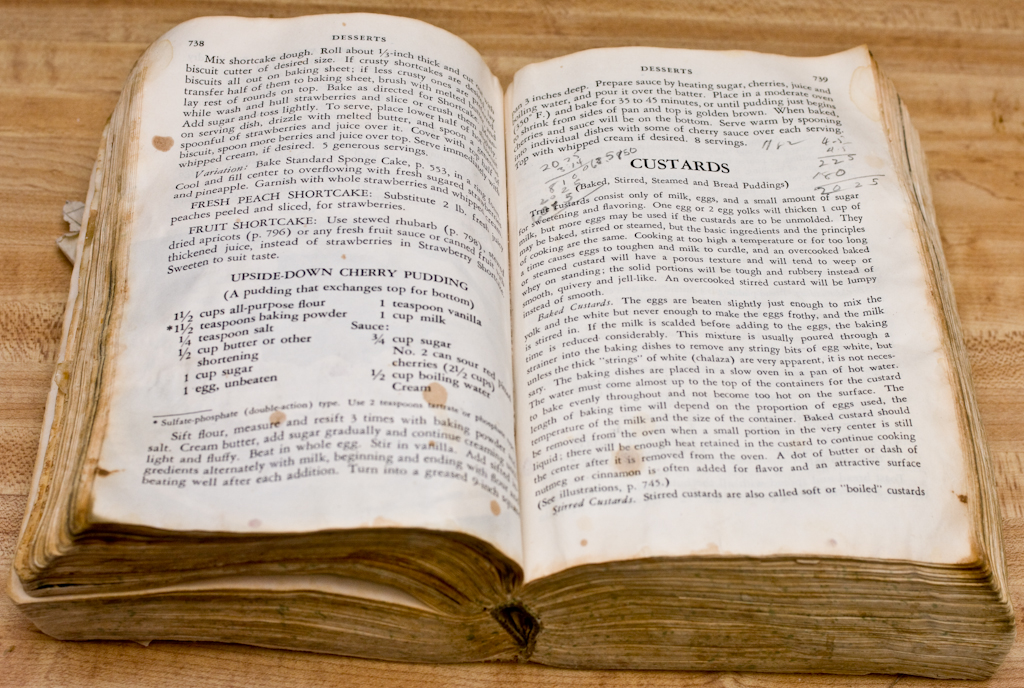 738
DESSERTS
Mix shortcake dough. Roll about 1/3-inch thick and cut
biscuit cutter of desired size. If crusty shortcakes are
biscuits all out on baking sheet; if less crusty ones are
transfer half of them to baking sheet, brush with melted
lay rest of rounds on top. Bake as directed for Shortcake
while wash and hull strawberries and slice or crush
Add sugar and toss lightly. To serve, place lower half of
on serving dish, drizzle with melted butter, and spoon a
spoonful of strawberries and juice over it. Cover with
biscuit, spoon more berries over top. Serve
whipped cream, if desired. 5 generous servings.
Variation: Bake Standard Sponge Cake, p. 553, in a ring
Cool and fill center to overflowing with fresh sugared
and pineapple. Garnish with whole strawberries and whipped
FRESH PEACH SHORTCAKE: Substitute 2 lb. fresh,
peaches peeled and sliced, for strawberries.
FRUIT SHORTCAKE: Use stewed rhubarb (p. 798),
dried apricots (p. 796) or any fresh fruit sauce or canned
thickened juice, instead of strawberries in Strawberry
Sweeten to suit taste.
UPSIDE-DOWN CHERRY PUDDING
(A pudding that exchanges top for bottom)
1 1/2 cups all-purpose flour
*1 1/2 teaspoons baking powder
1/4 teaspoon salt
1/2 cup butter or other
shortening
1 cup sugar
1 egg, unbeaten
1 teaspoon vanilla
1 cup milk
Sauce:
3/4 cup sugar
No. 2 can sour red
cherries (2 1/2 cups)
1/2 cup boiling water
Cream
* Sulfate-phosphate (double-action) type. Use 2 teaspoons tartrate or phosphate
Sift flour, measure and resift 3 times with baking powder
salt. Cream butter, add sugar gradually and continue creaming
light and fluffy. Beat in whole egg. Stir in vanilla. Add sifted
gredients alternately with milk, beginning and ending with flour
beating well after each addition. Turn into a greased 9-inch
DESSERTS
739
3 inches deep. Prepare sauce by heating sugar, cherries, juice and
boiling water, and pour it over the batter. Place in a moderate oven
F.) and bake for 35 to 45 minutes, or until pudding just begins
to shrink from sides of pan and top is golden brown. When baked,
cherries and sauce will be on the bottom. Serve warm by spooning
into individual dishes with some of cherry sauce over each serving.
Top with whipped cream if desired. 8 servings.
225
CUSTARDS
(Baked, Stirred, Steamed and Bread Puddings)
True Custards consist only of milk, eggs, and a small amount of sugar
for sweetening and flavoring. One egg or 2 egg yolks will thicken 1 cup of
milk, but more eggs may be used if the custards are to be unmolded. They
may be baked, stirred or steamed, but the basic ingredients and the principles
of cooking are the same. Cooking at too high a temperature or for too long
a time causes eggs to toughen and milk to curdle, and an overcooked baked
or steamed custard will have a porous texture and will tend to weep or
whey on standing; the solid portions will be tough and rubbery instead of
smooth, quivery and jell-like. An overcooked stirred custard will be lumpy
instead of smooth.
Baked Custards. The eggs are beaten slightly just enough to mix the
yolk and the white but never enough to make the eggs frothy, and the milk
is stirred in. If the milk is scalded before adding to the eggs, the baking
time is reduced considerably. This mixture is usually poured through a
strainer into the baking dishes to remove any stringy bits of egg white, but
unless the thick "strings" of white (chalaza) are very apparent, it is not neces-
sary. The baking dishes are placed in a slow oven in a pan of hot water.
The water must come almost up to the top of the containers for the custard
to bake evenly throughout and not become too hot on the surface. The
length of baking time will depend on the proportion of eggs used, the
temperature of the milk and the size of the container. Baked custard should
be removed from the oven when a small portion in the very center is still
liquid; there will be enough heat retained in the custard to continue cooking
the center after it is removed from the oven. A dot of butter or dash of
nutmeg or cinnamon is often added for flavor and an attractive surface
(See illustrations, p. 745.)
Stirred Custards. Stirred custards are also called soft or "boiled" custards